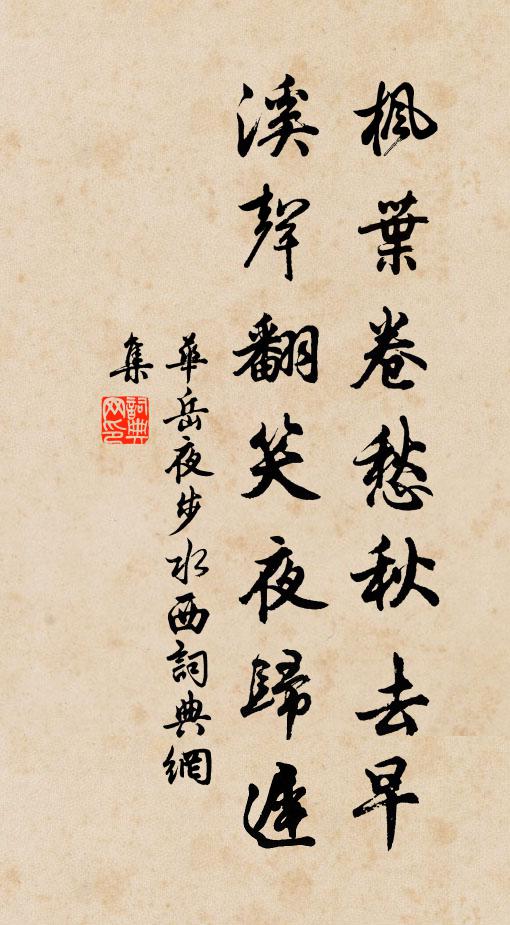 枫葉卷愁秋去早
溪聲翻笑夜歸遲
華岳夜步水西詞典網
集
詞典網印